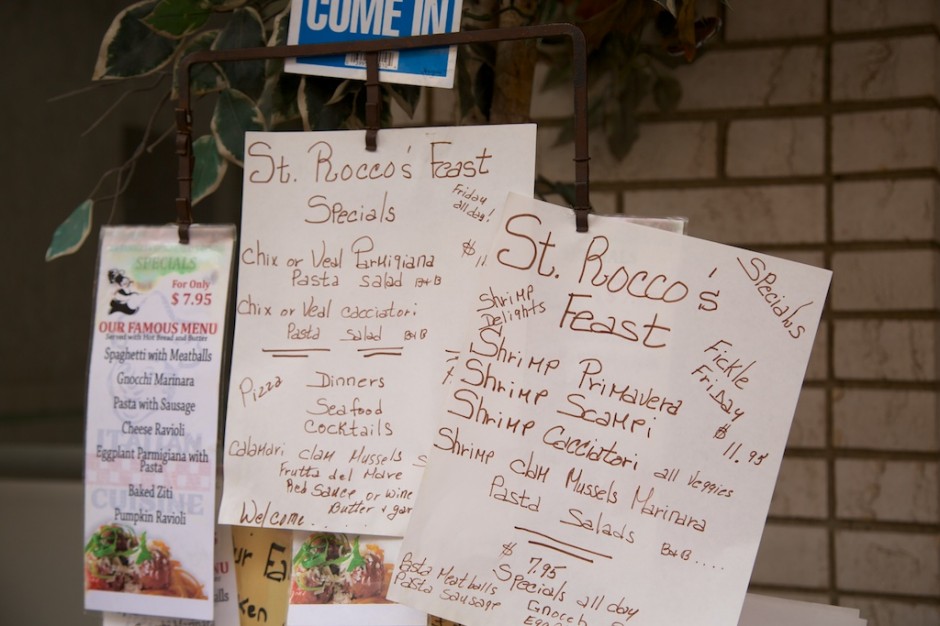 COME IN
SPECIALS
For Only
$ 7.95
OUR FAMOUS MENU
Served with Hot Bread and Butter
Spaghetti with Meatballs
Gnocchi Marinara
Pasta with Sausage
Cheese Ravioli
Eggplant Parmigiana with
Pasta
Baked Ziti
Pumpkin Ravioli
St. Rocco's Feast
Specials
Friday
all day!
Chix or Veal Parmigiana
Pasta Salad B+B
$11
Chix or Veal Cacciatori
Pasta Salad B+B
Pizza Dinners
Seafood
Cocktails
Calamari Clam Mussels
Frutta del Mare
Red Sauce or Wine
Butter + gar
Welcome....
St. Rocco's
Feast
Specials
Shrimp
Delights
Fickle
Friday
$
11.95
Shrimp Primavera
Shrimp Scampi
Shrimp Cacciatori all Veggies
Shrimp Clam Mussels Marinara
Pasta Salads B+B....
$ 7.95
Specials all day
Pasta Meatballs Gnocch
Pasta Sausage